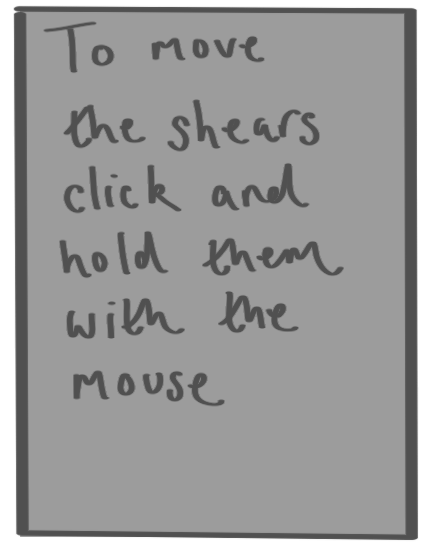 To move
the shears
click and
hold them
with the
mouse